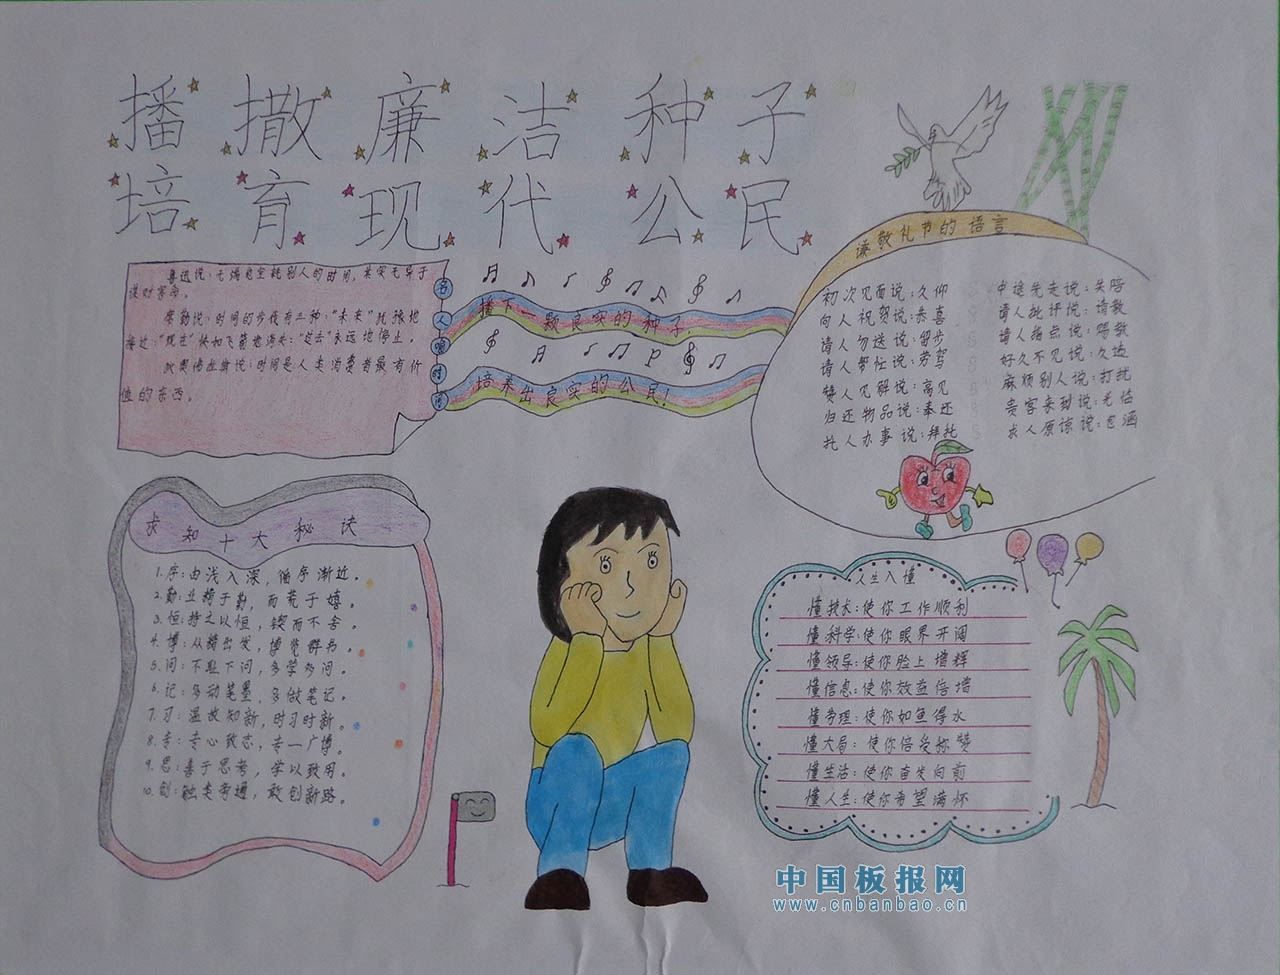 播撒廉洁种子
培育现代公民
鲁迅说:无端地空耗别人的时间,其实无异于
谋财害命。
席勒说:时间的步伐有三种:"未来"
接近;"现在"快如飞箭地消失;"过去"永远地停止。
说:时间是人类消费者最有价
值的东西。
名人唱时间
播下一颗良实的种子,
培养出良实的公民!
谦敬礼节的语言
初次见面说:久仰
向人祝贺说:恭喜
请人勿送说:留步
请人帮忙说:劳驾
赞人见解说:高见
归还物品说:奉还
托人办事说:拜托
中途先走说:失陪
请人批评说:请教
请人指点说:赐教
好久不见说:久违
麻烦别人说:打扰
贵客来到说:光临
求人原谅说:包涵
求知十大秘诀
1.序:由浅入深,循序渐近。
2.勤:业精于勤,而荒于嬉。
3.恒:持之以恒,锲而不舍。
4.博:从精出发,博览群书。
5.问:不耻下问,多学多问。
6.记:多动笔墨,多做笔记。
7.习:温故知新,时习时新。
8.专:专心致志,专一广博。
9.思:善于思考,学以致用。
10.创:触类旁通,敢创新路。
人生八懂
懂技术:使你工作顺利
懂科学:使你眼界开阔
懂领导:使你脸上增辉
懂信息:使你效益倍增
懂管理:使你如鱼得水
懂大局:使你倍受称赞
懂生活:使你奋发向前
懂人生:使你希望满怀
中国板报网
www.cnbanbao.cn